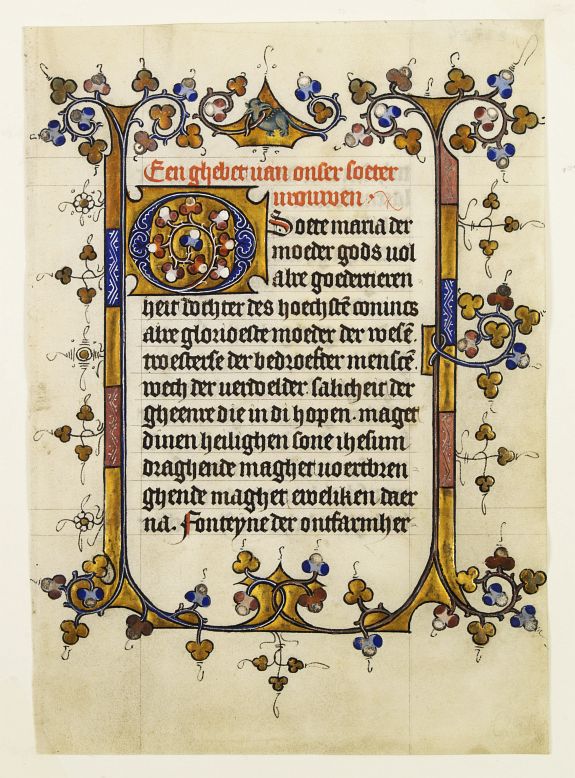 Een ghebet uan onser soeter
urouwen ·
O Soete maria der
moeder gods uol
alre goedertieren
heit dochter des hoechstē conincs
alre glorioeste moeder der wesē.
troesterse der bedroefder menscē.
wech der uerdoelder. salicheit der
gheenre die in di hopen. maget
dinen heilighen sone ihesum
draghende maghet uoertbren
ghende maghet eweliken daer
na. Fonteyne der ontfarmher